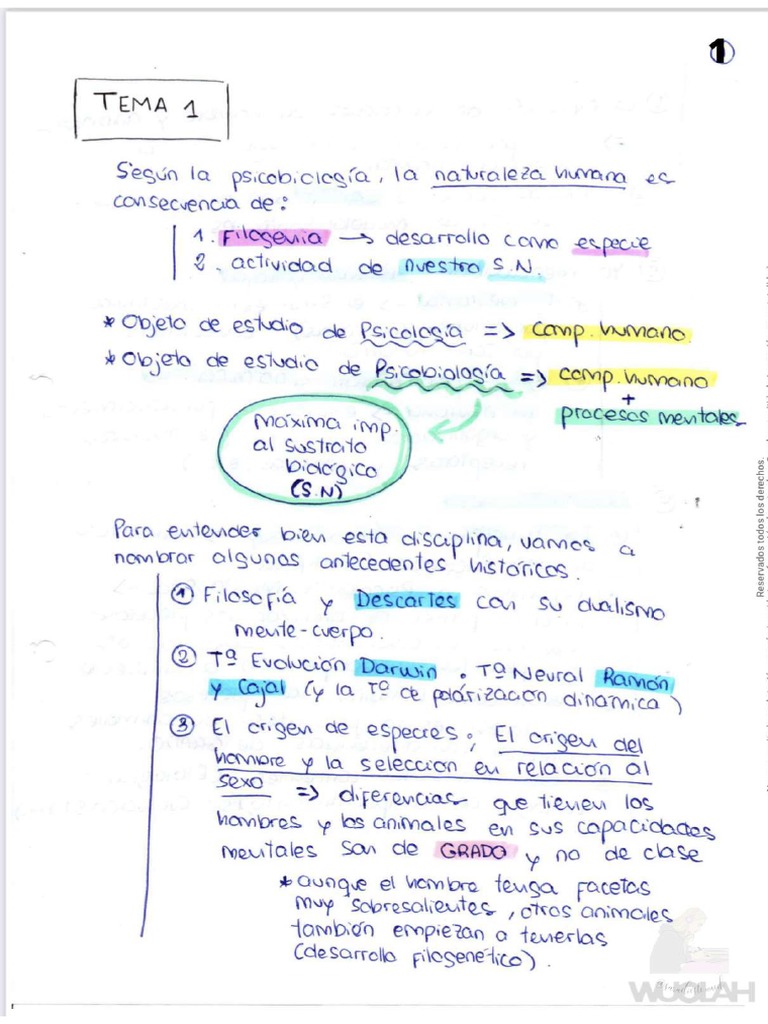 1
TEMA 1
Según la psicobiología, la naturaleza humana es
consecuencia de:
1. Filogenia → desarrollo como especie
2. actividad de nuestro S.N.
* Objeto de estudio de Psicología => comp. humano.
* Objeto de estudio de Psicobiología => comp. humano
+
procesos mentales
Máxima imp.
al sustrato
biológico
(S.N)
Para entender bien esta disciplina, vamos a
nombrar algunos antecedentes históricos.
① Filosofía y Descartes con su dualismo
mente-cuerpo.
② Tª Evolución Darwin. Tª Neural Ramón
y Cajal (y la Tª de polarización dinámica)
③ El origen de especies; El origen del
hombre y la selección en relación al
sexo => diferencias que tienen los
hombres y los animales en sus capacidades
mentales son de GRADO y no de clase
* aunque el hombre tenga facetas
muy sobresalientes, otros animales
también empiezan a tenerlas
(desarrollo filogenético).
Reservados todos los derechos.
WUOLAH